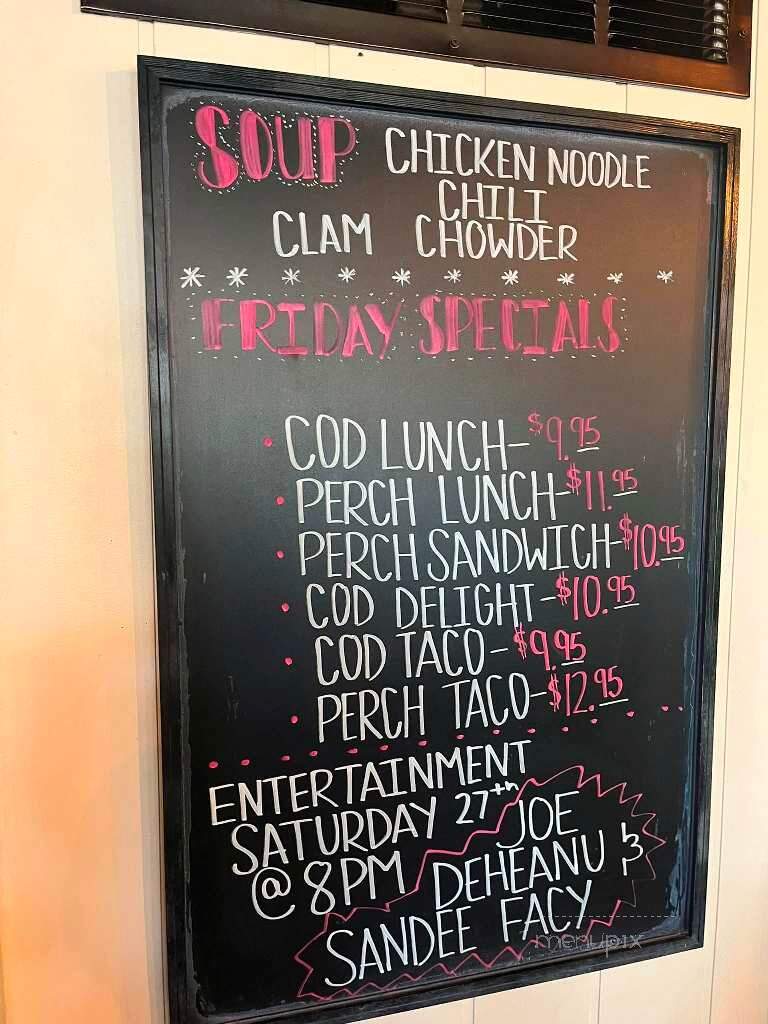 SOUP CHICKEN NOODLE
CHILI
CLAM CHOWDER
FRIDAY SPECIALS
• COD LUNCH-$9.95
• PERCH LUNCH-$11.95
• PERCH SANDWICH-$10.95
• COD DELIGHT-$10.95
• COD TACO-$9.95
• PERCH TACO-$12.95
ENTERTAINMENT
SATURDAY 27th
@ 8PM
JOE
DEHEANU &
SANDEE FACY
menupix